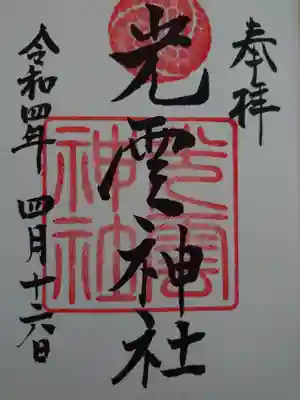 奉拝
光雲神社
光雲
神社
令和四年 四月十六日